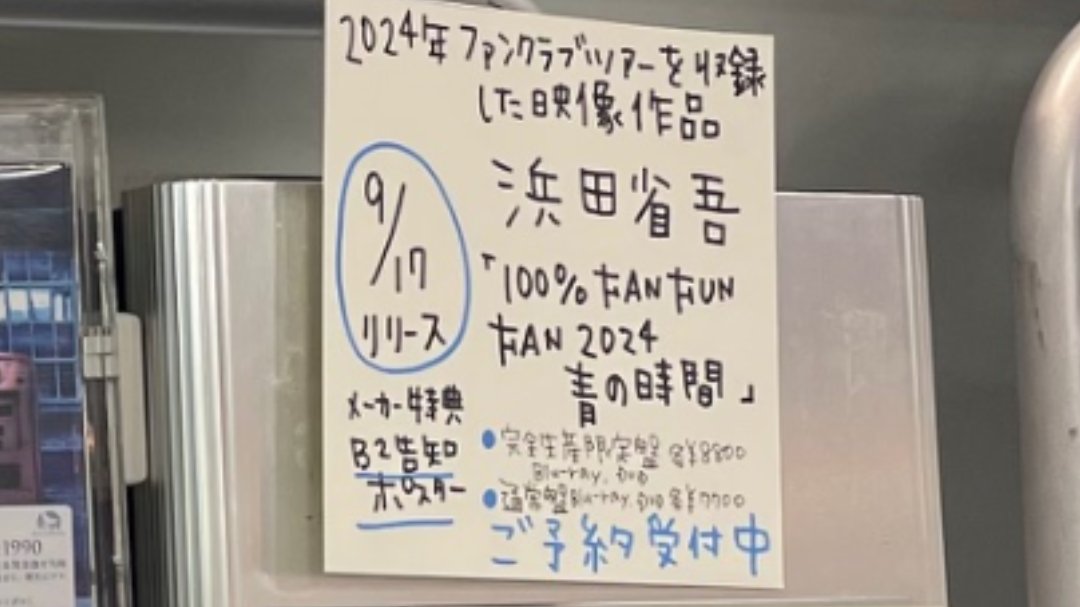 2024年ファンクラブツアーを収録
した映像作品
9/17
リリース
浜田省吾
「100% FAN FUN
FAN 2024
青の時間」
メーカー特典
B2告知
ポスター
●完全生産限定盤 各¥8800
Blu-ray, DVD
●通常盤Blu-ray, DVD 各¥7700
ご予約受付中
1990